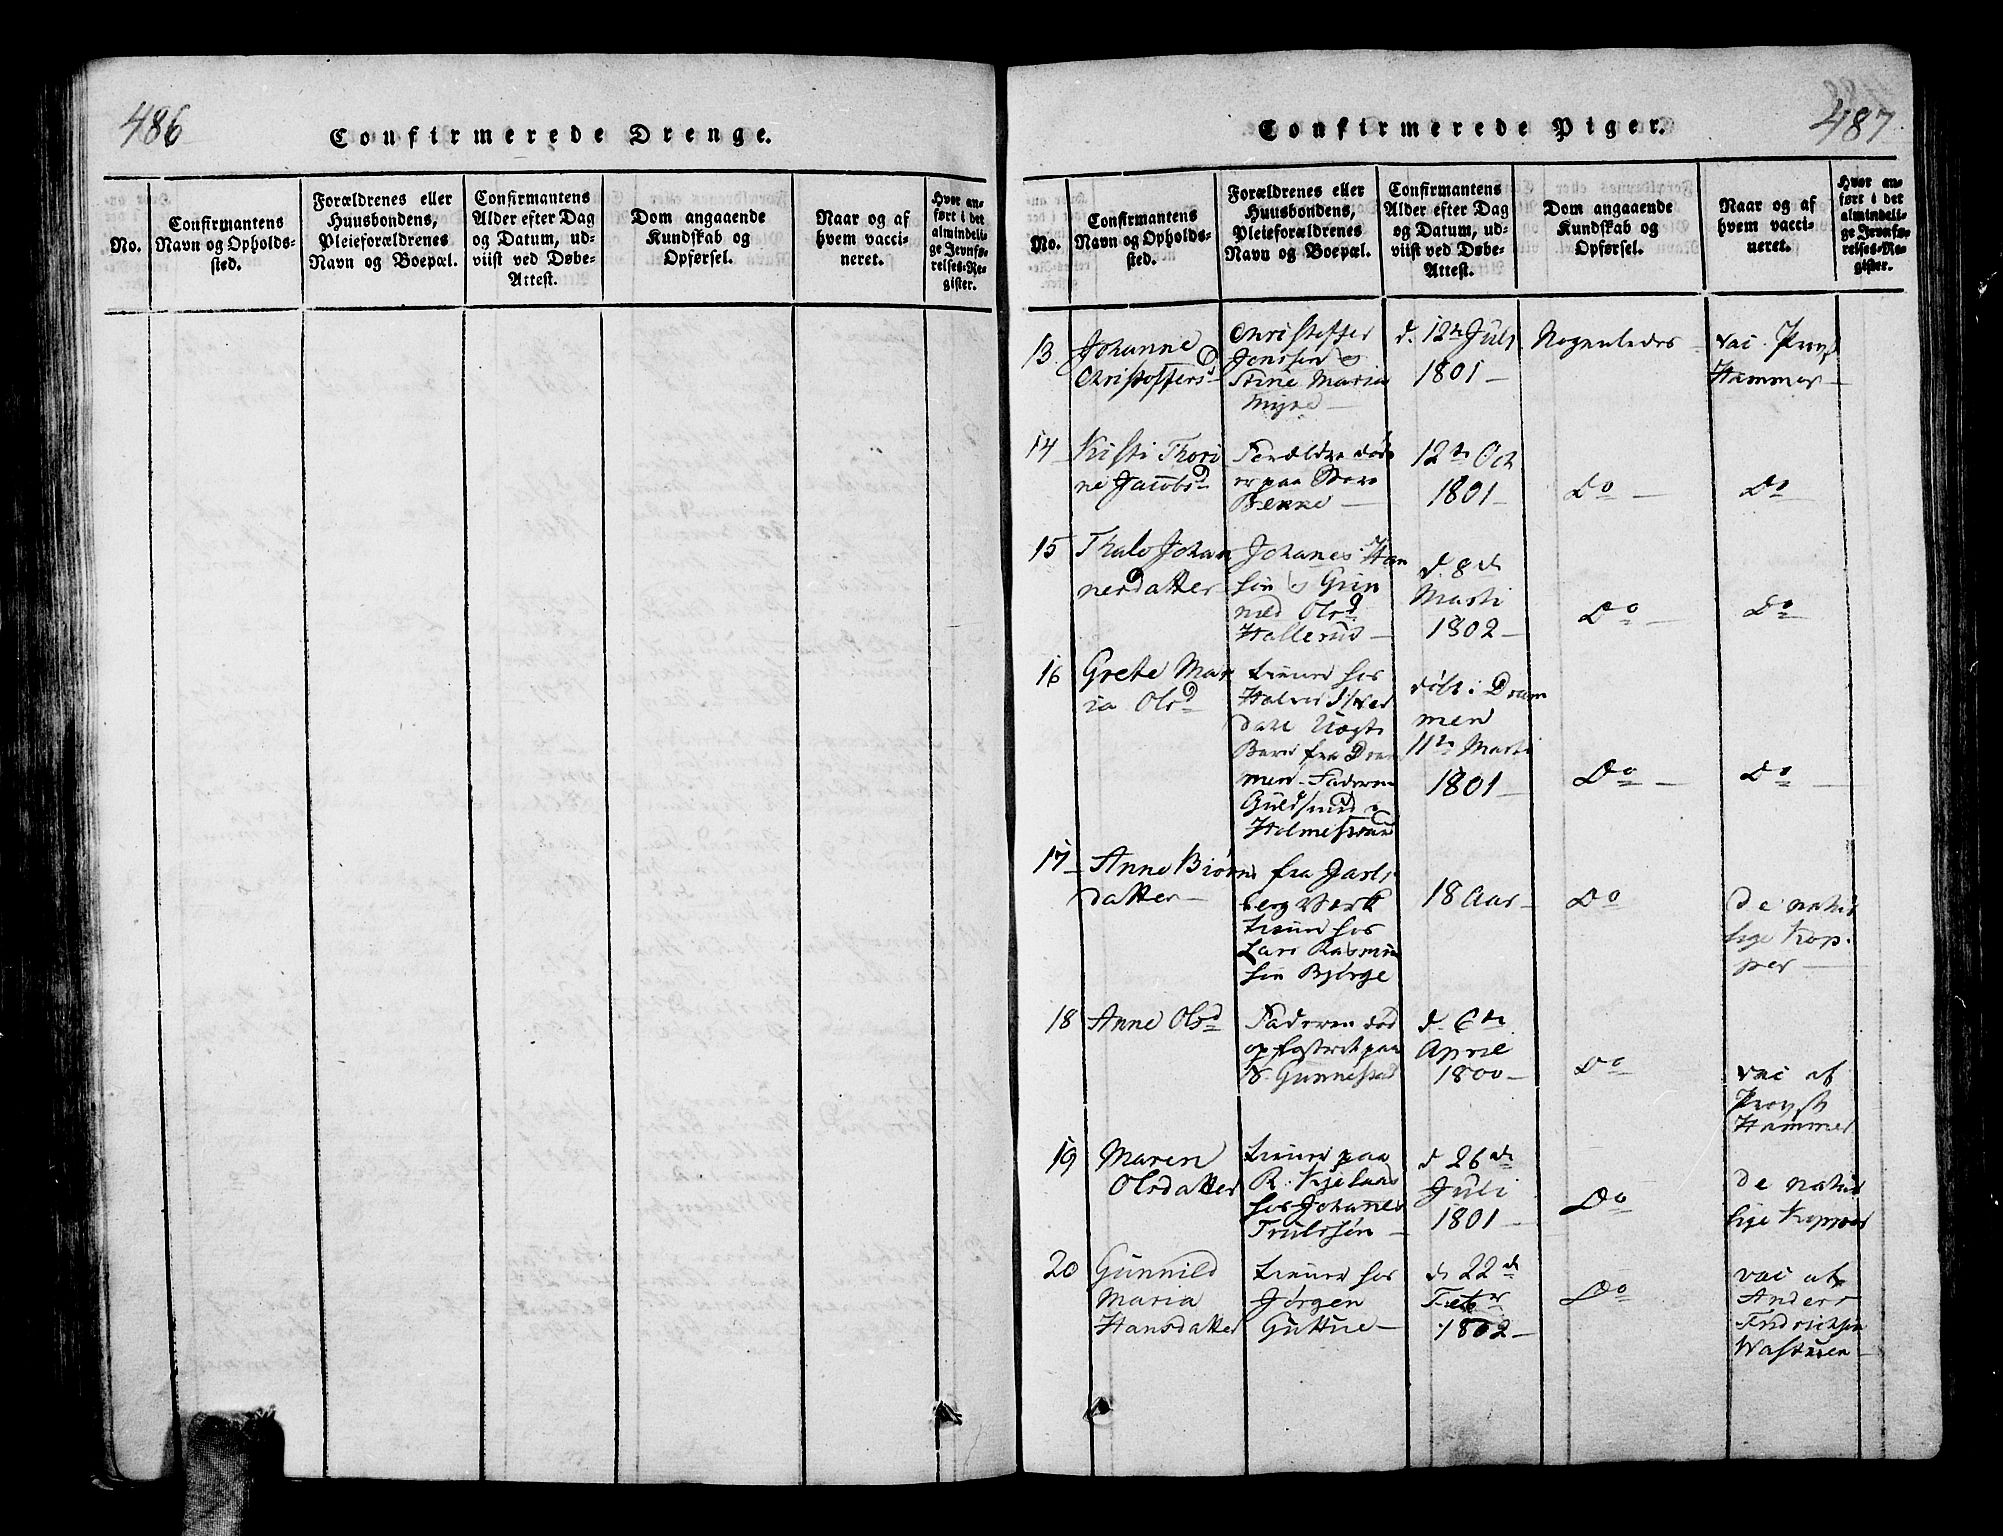 486
Confirmerede Drenge.
No.
Confirmantens
Navn og Opholds-
sted.
Forældrenes eller
Huusbondens,
Pleieforældrenes
Navn og Boepæl.
Confirmantens
Alder efter Dag
og Datum, ud-
viist ved Døbe-
Attest.
Dom angaaende
Kundskab og
Opførsel.
Naar og af
hvem vacci-
neret.
Hvor an-
ført i det
almindeli-
ge Jevnfø-
relses-Re-
gister.
487
Confirmerede Piger.
No.
Confirmantens
Navn og Opholds-
sted.
Forældrenes eller
Huusbondens,
Pleieforældrenes
Navn og Boepæl.
Confirmantens
Alder efter Dag
og Datum, ud-
viist ved Døbe-
Attest.
Dom angaaende
Kundskab og
Opførsel.
Naar og af
hvem vacci-
neret.
Hvor an-
ført i det
almindeli-
ge Jevnfø-
relses-Re-
gister.
13.
Johanne
Christoffersd
Christoffer
Jenssen og
Stine Maria
Myre
d. 12te Juli
1801
Nogenledes
vac. Provst
Hammer
14
Kisti Thori
ne Jacobsd
Forældre døde
er paa
Bekke
12te Oct
1801
Do
Do
15
Johan
nesdatter
Johanes Han
sen og Gun
nild Olsd
Hallerud
d. 8de
Marti
1802
Do
Do
16
Grete Mar
ia Olsd
tienner hos
Halvor
dahl
Barn fra Dram
men. Faderen
Guldsmed i
Holmestrand
døbt i Dram
men
11te Marti
1801
Do
Do
17
Anne Biørns
datter
fra Jarls
berg Værk
tienner hos
Lars Rasmus
sen Bjerge
18 Aar
Do
de natur
lige Kop-
per
18
Anne Olsd
Faderen død
opfostret paa
N. Gunnestad
d. 6te
April
1800
Do
vac af
Provst
Hammer
19
Maren
Olsdatter
tienner paa
R. Kjelaas
hos Johanes
Trulssøn
d 26de
Juli
1801
Do
de natur
lige Kopper
20
Gunnild
Maria
Hansdatter
tienner hos
Jørgen
d. 22de
Febr
1802
Do
vac af
Anders
Fridrichsen